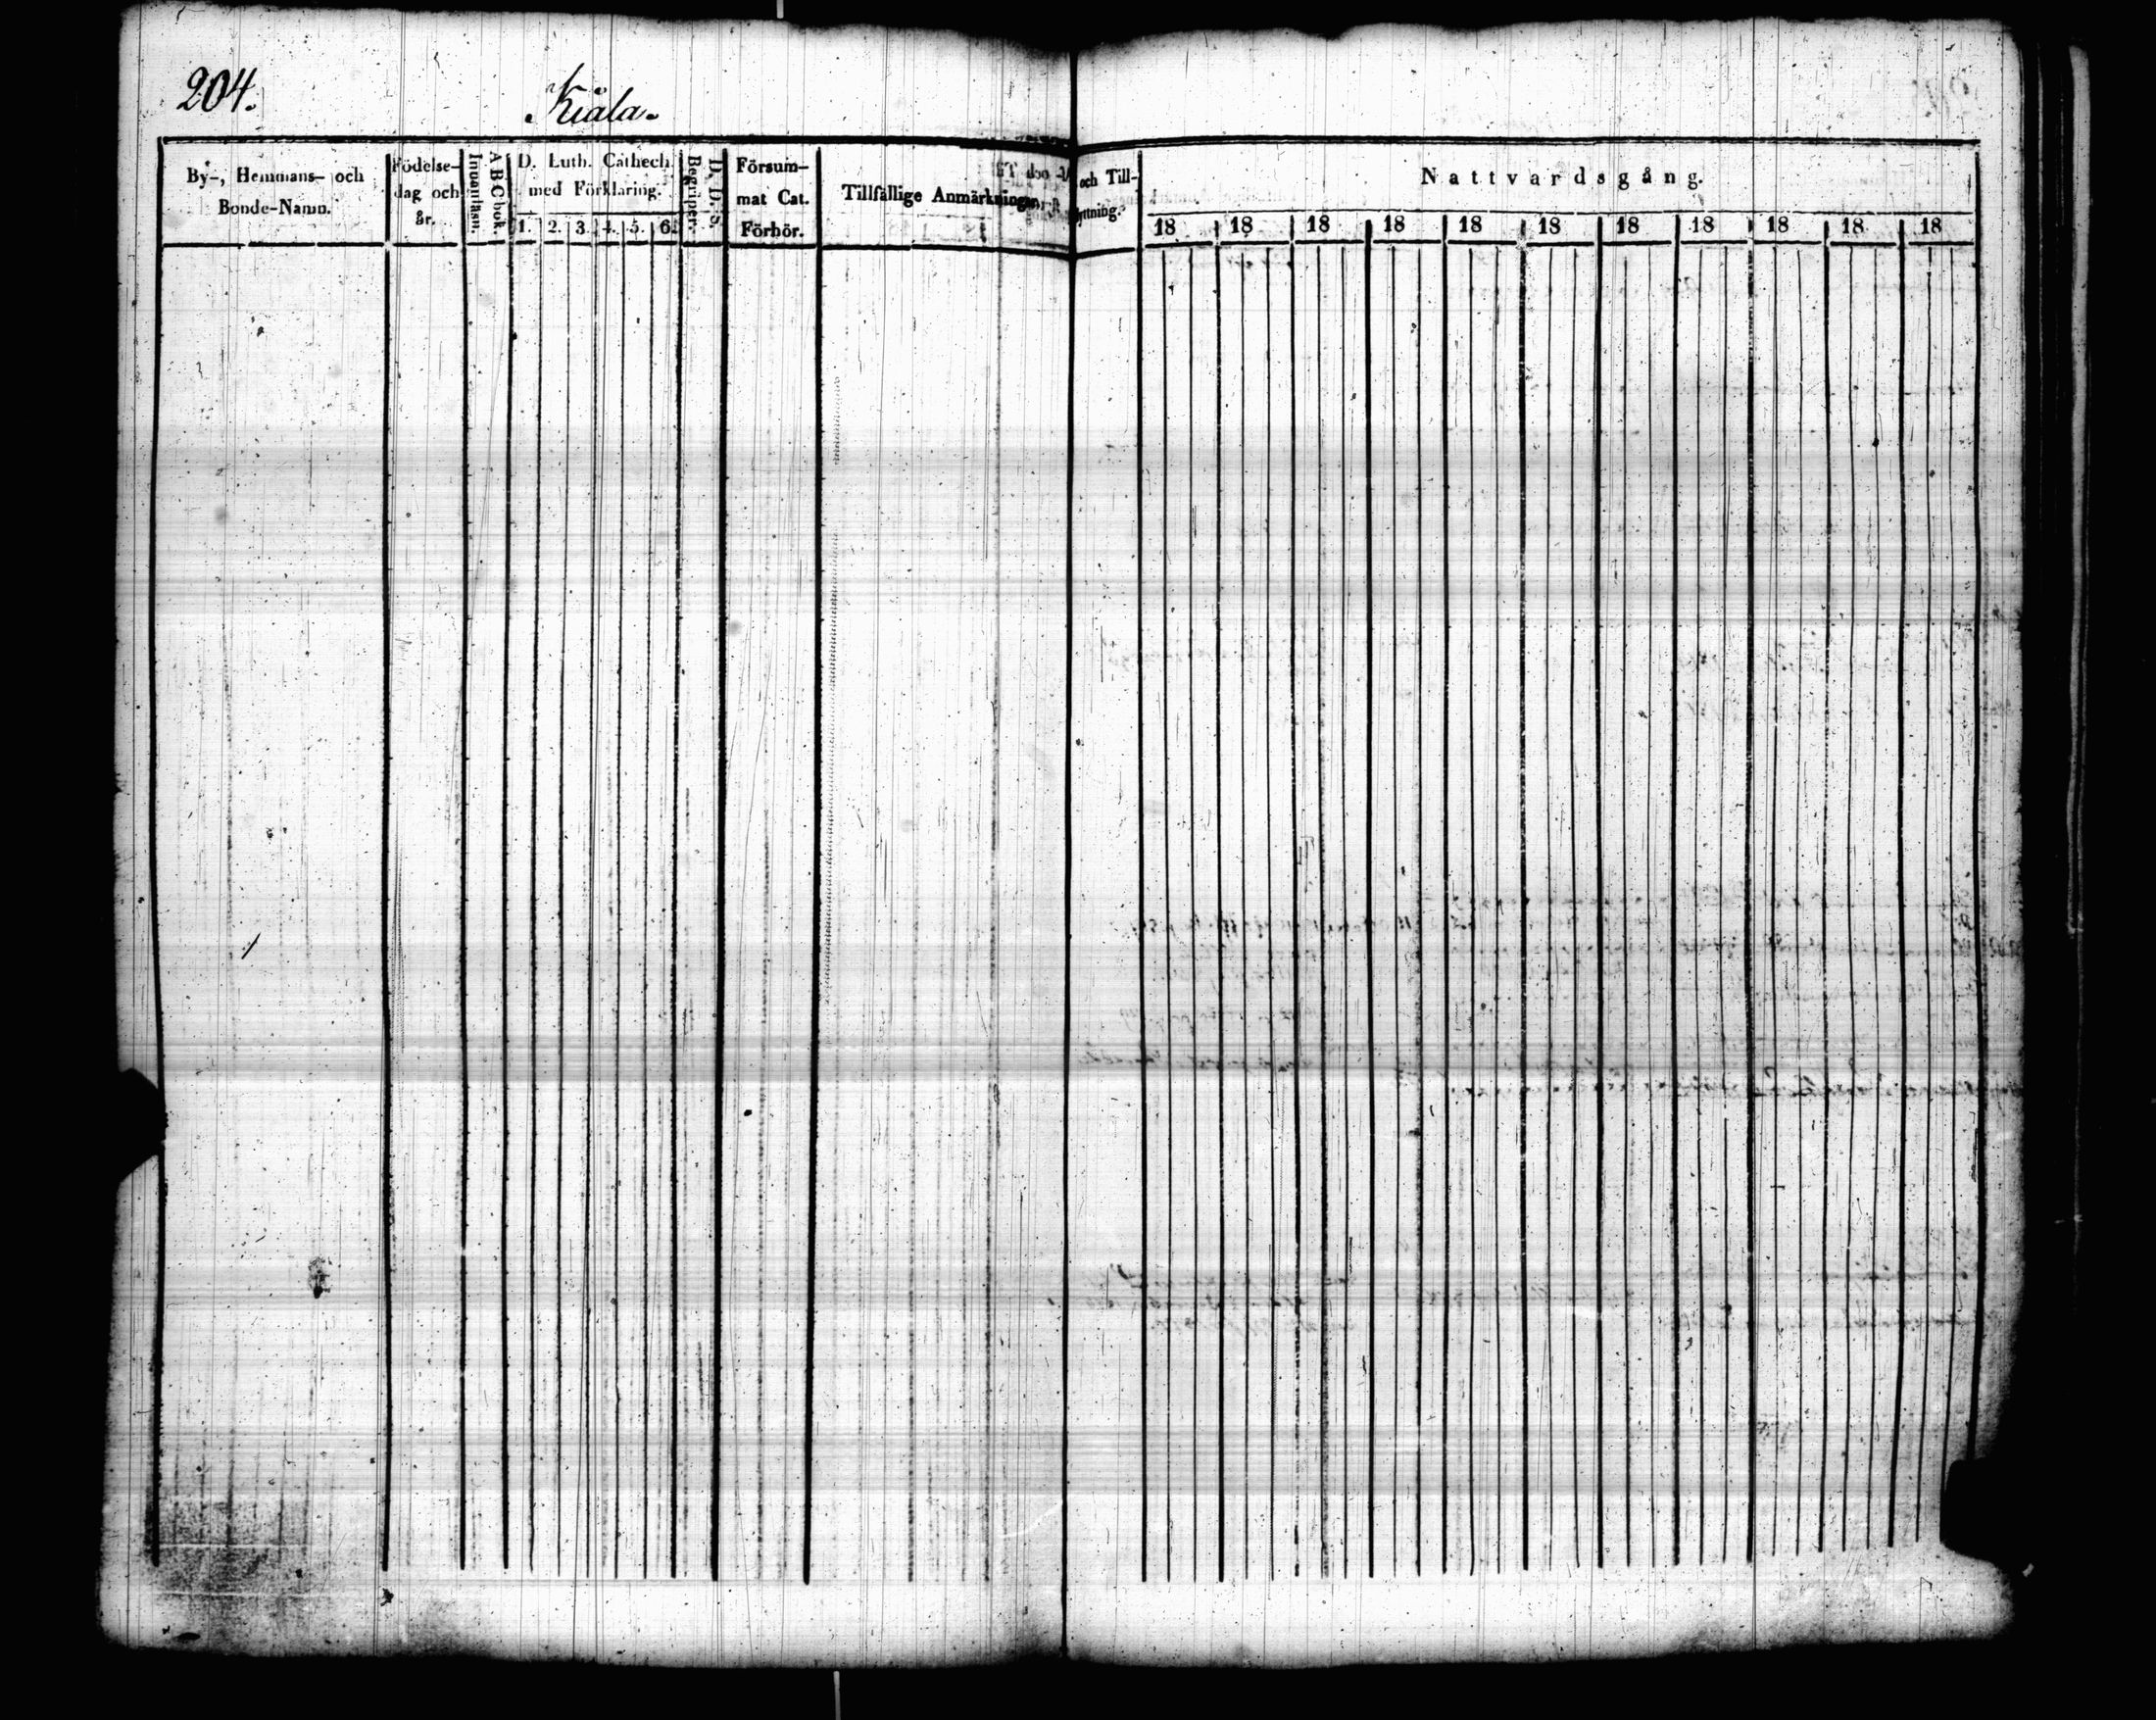 204.
Kiäla.
By-, Hemmans- och
Bonde-Namn.
Födelse-
dag och
år.
Innanläsn.
A B C bok.
D. Luth. Cathech.
med Förklaring.
1. 2. 3. 4. 5. 6.
Begriper.
D. D. S.
Försum-
mat Cat.
Förhör.
Tillfällige Anmärkningar,
och Till-
flyttning.
Nattvardsgång.
18 18 18 18 18 18 18 18 18 18 18